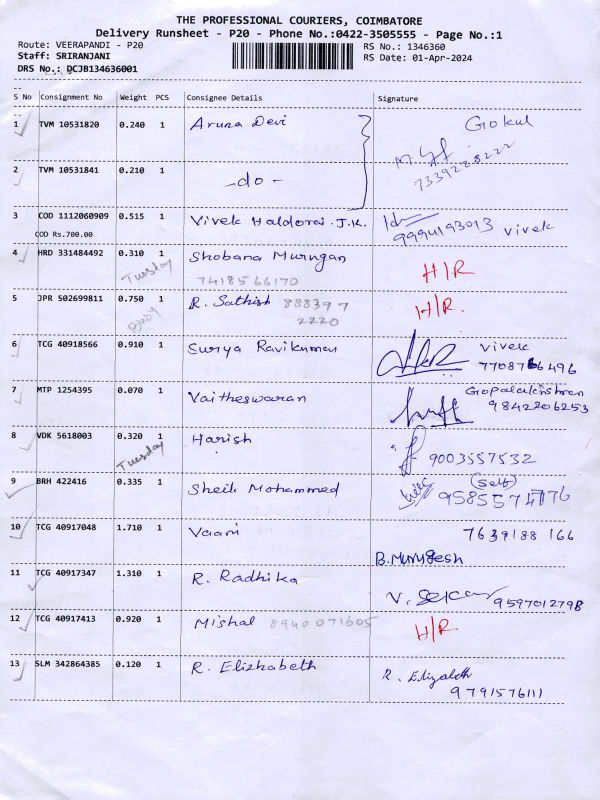 THE PROFESSIONAL COURIERS, COIMBATORE
Delivery Runsheet - P20 - Phone No.:0422-3505555 - Page No.:1
Route: VEERAPANDI - P20 RS No.: 1346360
Staff: SRIRANJANI RS Date: 01-Apr-2024
DRS No.: DCJB134636001
S No Consignment No Weight PCS Consignee Details Signature
1 TVM 10531820 0.240 1 Aruna Devi Gokul
7339228222
2 TVM 10531841 0.210 1 -do-
3 COD 1112060909 0.515 1 Vivek Haldorai.J.K. 9994193013 Vivek
COD Rs.700.00
4 HRD 331484492 0.310 1 Shobana Murugan H/R
Tuesday 7418566170
5 JPR 502699811 0.750 1 R. Sathish 888397 H/R.
Busy 2220
6 TCG 40918566 0.910 1 Surya Ravikumar Vivek
7708766496
7 MTP 1254395 0.070 1 Vaitheswaran Gopalakrishnan
9842206253
8 VDK 5618003 0.320 1 Harish 9003557532
Tuesday
9 BRH 422416 0.335 1 Sheik Mohammed (Self)
9585574776
10 TCG 40917048 1.710 1 Vaani 7639188 166
B.Murugesh
11 TCG 40917347 1.310 1 R. Radhika V. Sekar 9597012798
12 TCG 40917413 0.920 1 Mishal 8940071605 H/R
13 SLM 342864385 0.120 1 R. Elizhabeth R. Elizabeth
9791576111